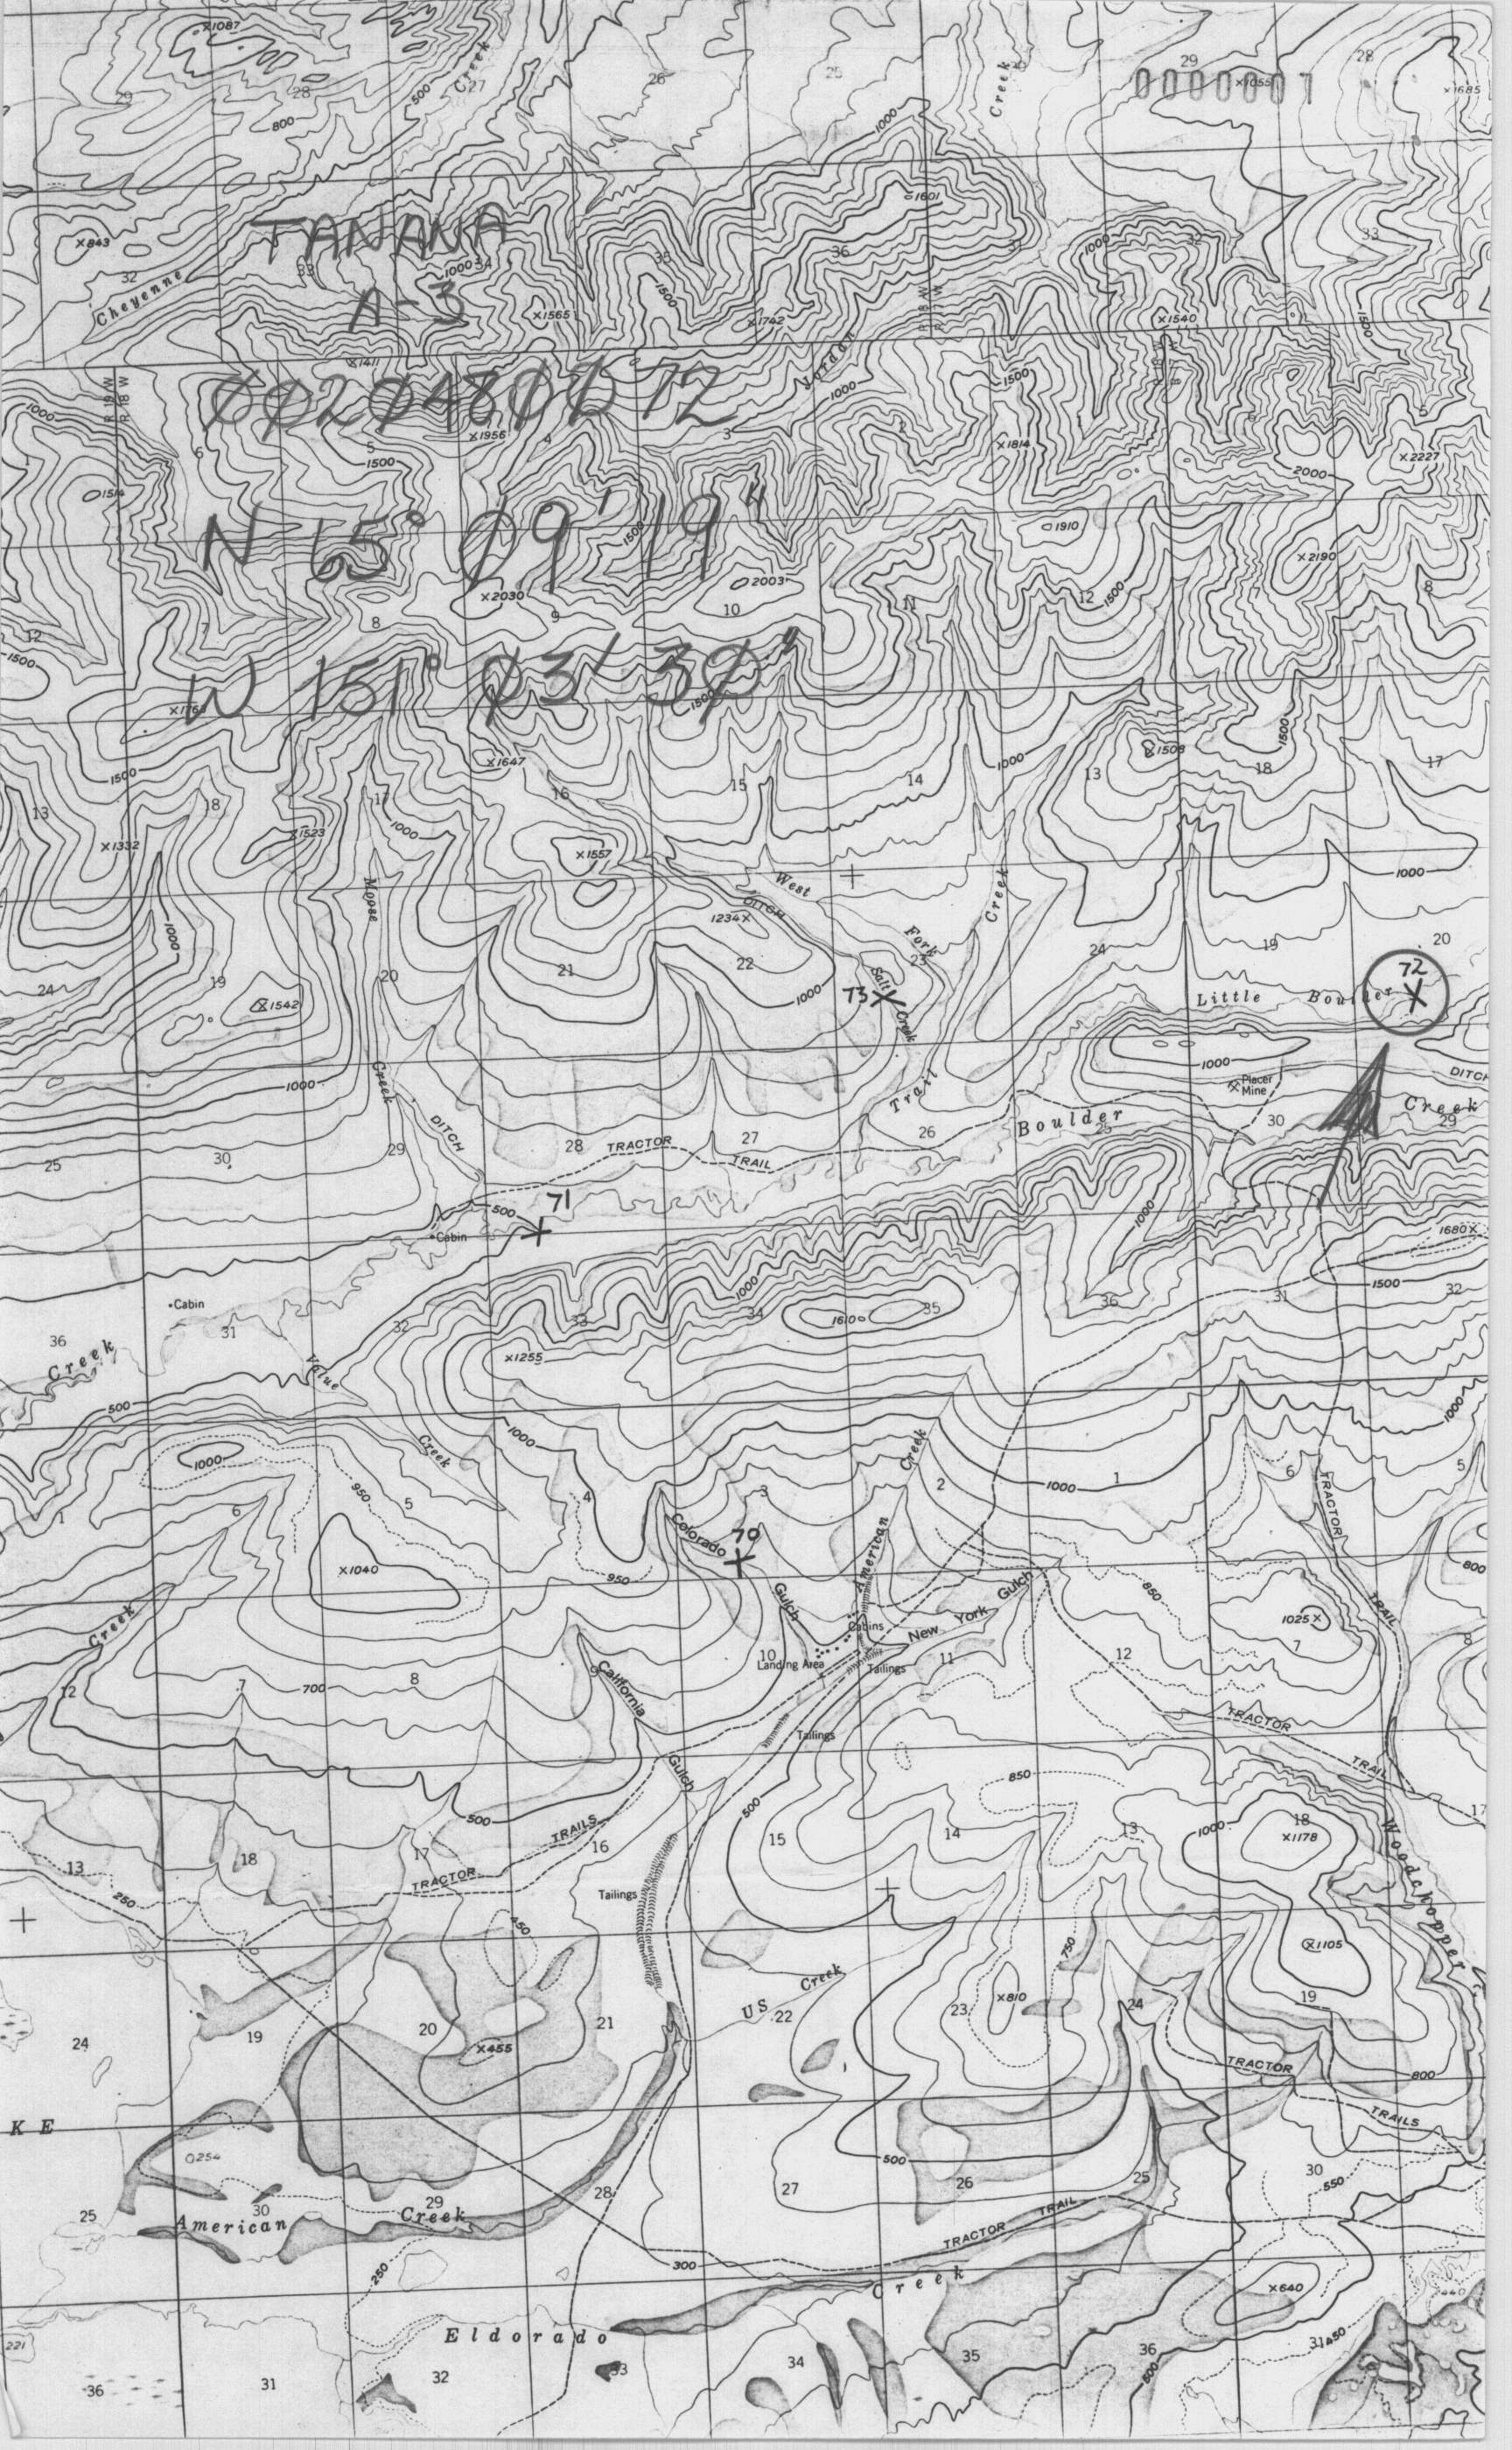 ×1087
Creek
Creek
29
28
27
26
25
29
28
0000001
×1055
×1685
500
800
1000
1601
TANANA
×843
32
33
1000
34
35
36
31
1000
32
33
Cheyenne
A-3
×1565
1500
×1742
R 18 W
R 17 W
×1540
1500
×1411
Jordan
1000
1500
R 19 W
R 18 W
1000
0020480072
×1956
6
5
4
3
2
×1814
6
5
1500
2000
×2227
1514
N 65° 09' 19"
1500
1910
×2190
×2030
2003
12
7
8
9
10
11
12
1500
7
8
1500
W 151° 03' 30"
1500
×1647
1500
1000
1508
1500
13
18
17
16
15
14
13
18
17
×1332
×1523
1000
×1557
1000
Moose
West
DITCH
1234×
Creek
1000
Fork
24
19
20
21
22
23
24
19
20
1542
1000
73
Salt
Creek
Little Boulder
72
1000
Creek
1000
Placer
Mine
DITCH
DITCH
Trail
Boulder
Creek
25
30
29
28
TRACTOR
27
TRAIL
26
25
30
29
71
500
Cabin
1000
1680×
1500
Cabin
36
31
32
33
1000
34
1610
35
36
31
32
Creek
Value
×1255
500
1000
1000
Creek
1000
Creek
950
1
6
5
4
3
2
1000
1
6
5
TRACTOR
Colorado
70
American
×1040
950
800
Gulch
Gulch
850
TRAIL
Creek
Cabins
New York
1025×
10
Landing Area
Tailings
11
12
7
8
12
7
700
8
9
California
Tailings
TRACTOR
Gulch
TRAIL
850
500
500
TRAILS
16
15
14
13
1000
18
×1178
17
13
18
17
TRACTOR
250
Tailings
Woodchopper
450
750
×1105
US Creek
×810
24
19
20
21
22
23
24
19
×455
TRACTOR
800
TRAILS
K E
254
500
25
30
29
28
27
26
25
30
550
American
Creek
TRACTOR
TRAIL
250
300
Creek
×640
Eldorado
221
36
31
32
33
34
35
36
500
31
450